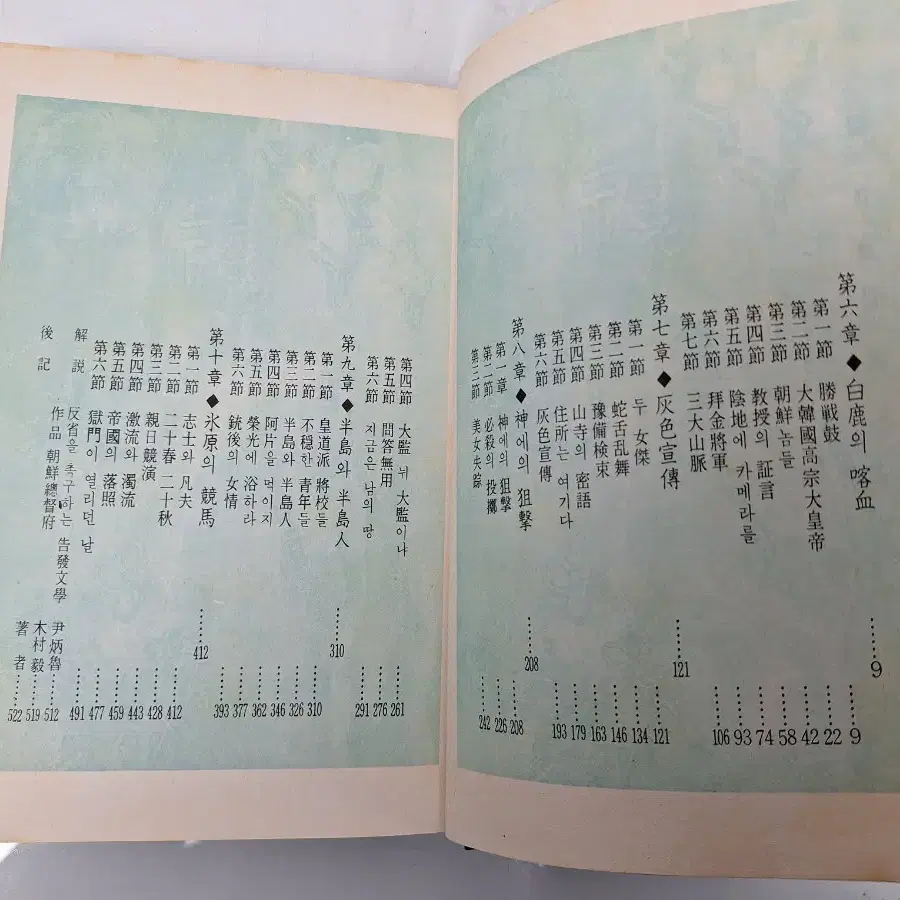 第六章 ◆ 白鹿의 喀血 …… 9
第一節 勝戦鼓 …… 9
第二節 大韓國高宗大皇帝 …… 22
第三節 朝鮮놈들 …… 42
第四節 教授의 証言 …… 58
第五節 陰地에 카메라를 …… 74
第六節 拜金將軍 …… 93
第七節 三大山脈 …… 106
第七章 ◆ 灰色宣傳 …… 121
第一節 두 女傑 …… 121
第二節 蛇舌乱舞 …… 134
第三節 豫備検束 …… 146
第四節 山寺의 密語 …… 163
第五節 住所는 여기다 …… 179
第六節 灰色宣傳 …… 193
第八章 ◆ 神에의 狙擊 …… 208
第一章 神에의 狙擊 …… 208
第二節 必殺의 投擲 …… 226
第三節 美女失踪 …… 242
第四節 大監 뉘 大監이냐 …… 261
第五節 問答無用 …… 276
第六節 지금은 남의 땅 …… 291
第九章 ◆ 半島와 半島人 …… 310
第一節 皇道派 將校들 …… 310
第二節 不穏한 青年들 …… 326
第三節 半島와 半島人 …… 346
第四節 阿片을 먹이지 …… 362
第五節 榮光에 浴하라 …… 377
第六節 銃後의 女情 …… 393
第十章 ◆ 氷原의 競馬 …… 412
第一節 志士와 凡夫 …… 412
第二節 二十春 二十秋 …… 428
第三節 親日競演 …… 443
第四節 激流와 濁流 …… 459
第五節 帝國의 落照 …… 477
第六節 獄門이 열리던 날 …… 491
解說 反省을 촉구하는 告發文學 尹炳魯 …… 512
作品 朝鮮總督府 木村毅 …… 519
後記 著者 …… 522